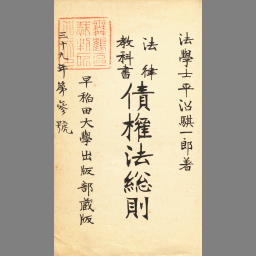 法學士平沼騏一郎著
法律
教科書
債權法總則
早稻田大學出版部蔵版
三十九年第參號